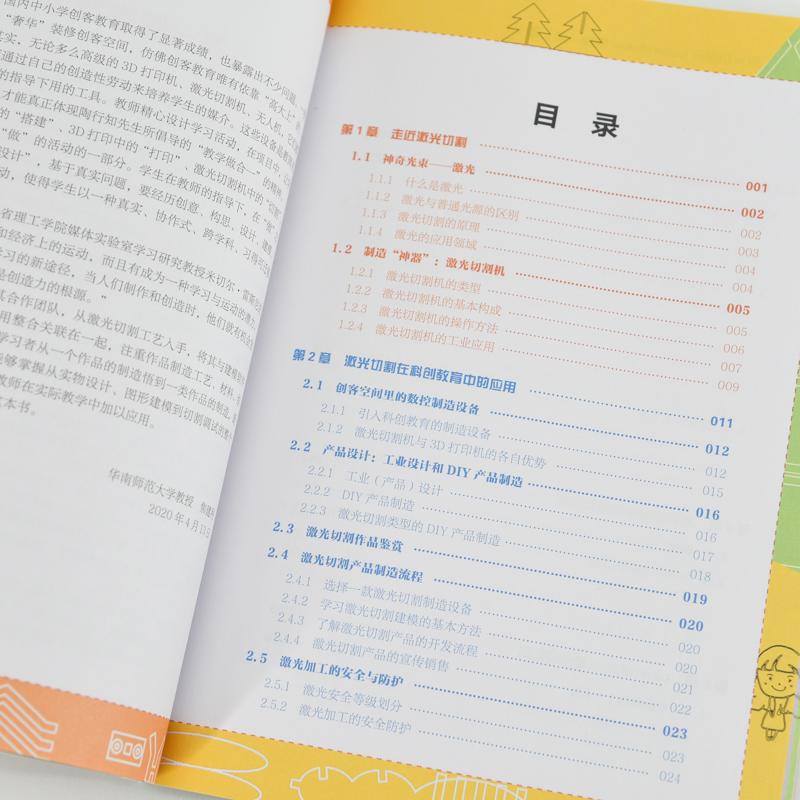 国内中小学创客教育取得了显著成绩，也暴露出不少问题，
“奢华”装修创客空间，仿佛创客教育唯有依靠“高大上”
实，无论多么高级的3D打印机、激光切割机、无人机，它
通过自己的创造性劳动来培养学生的媒介。这些设备
的指导下用的工具。教师精心设计学习活动，在项目中，
才能真正体现陶行知先生所倡导的“教学做合一”的精
的“搭建”、3D打印中的“打印”、激光切割机中的“切割”
“做”的活动的一部分。学生在教师的指导下，在“做”
设计”，基于真实问题，要经历创意、构思、设计、建
动，使得学生以一种真实、协作式、跨学科、习得
省理工学院媒体实验室学习研究教授米切尔·雷斯尼克
和经济上的运动，而且有成为一种学习与运动的潜力
学习的新途径，当人们制作和创造时，他们就有机会
是创造力的根源。”
其合作团队，从激光切割工艺入手，将其与建模
用整合关联在一起，注重作品制造工艺、材料、
学习者从一个作品的制造悟到一类作品的制造，
能够掌握从实物设计、图形建模到切割调试的
教师在实际教学中加以应用。
本书。
华南师范大学教授
2020年4月13日
目 录
第1章 走近激光切割 001
1.1 神奇光束——激光 002
1.1.1 什么是激光 002
1.1.2 激光与普通光源的区别 003
1.1.3 激光切割的原理 004
1.1.4 激光的应用领域 004
1.2 制造“神器”：激光切割机 005
1.2.1 激光切割机的类型 005
1.2.2 激光切割机的基本构成 006
1.2.3 激光切割机的操作方法 007
1.2.4 激光切割机的工业应用 009
第2章 激光切割在科创教育中的应用 011
2.1 创客空间里的数控制造设备 012
2.1.1 引入科创教育的制造设备 012
2.1.2 激光切割机与3D打印机的各自优势 015
2.2 产品设计：工业设计和DIY产品制造 016
2.2.1 工业（产品）设计 016
2.2.2 DIY产品制造 017
2.2.3 激光切割类型的DIY产品制造 018
2.3 激光切割作品鉴赏 019
2.4 激光切割产品制造流程 020
2.4.1 选择一款激光切割制造设备 020
2.4.2 学习激光切割建模的基本方法 020
2.4.3 了解激光切割产品的开发流程 021
2.4.4 激光切割产品的宣传销售 022
2.5 激光加工的安全与防护 023
2.5.1 激光安全等级划分 023
2.5.2 激光加工的安全防护 024